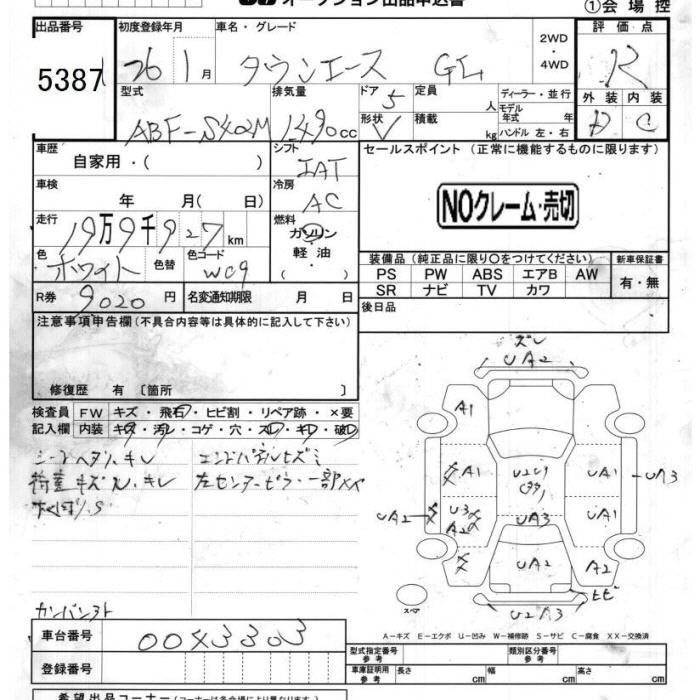 オークション出品申込書 ①会場控
出品番号 初度登録年月 車名・グレード 評価点
5387 26 1月 タウンエース GL 2WD・4WD R
型式 排気量 ドア 5 定員 人 ディーラー・並行 外装 内装
ABF-S402M 1490cc 形状 V 積載 kg モデル年式 年 D C
ハンドル 左・右
車歴 シフト セールスポイント (正常に機能するものに限ります)
自家用・( ) IAT
車検 冷房
年 月(日) AC NOクレーム・売切
走行 燃料
19万9千927km ガソリン
色 ホワイト 色替 色コード W09 軽油・( )
装備品(純正品に限り○をつけてください) 新車保証書
PS PW ABS エアB AW 有・無
SR ナビ TV カワ
R券 9020円 名変通知期限 月 日 後日品
注意事項申告欄(不具合内容等は具体的に記入して下さい)
修復歴 有〔箇所 〕
検査員 FW キズ・飛石・ヒビ割・リペア跡・×要
記入欄 内装 キズ・汚レ・コゲ・穴・スレ・キレ・破レ
シートヘタリ、キレ エンドパネルヒズミ
荷室キズ、凹、キレ 左センターピラー一部××
ズレ
UA2
A1
A1 UA1 UA3
UA2 U3 A2 UA3 UA1
UA2 A2
ヒビ
U2A3
スペア
A-キズ E-エクボ U-凹み W-補修跡 S-サビ C-腐食 XX-交換済
カンバンフト
車台番号 0043303
登録番号
型式指定番号 参考 類別区分番号 参考
車庫証明用 参考 長さ cm 幅 cm 高さ cm
希望出品コーナー(コーナーは各会場により異なります)